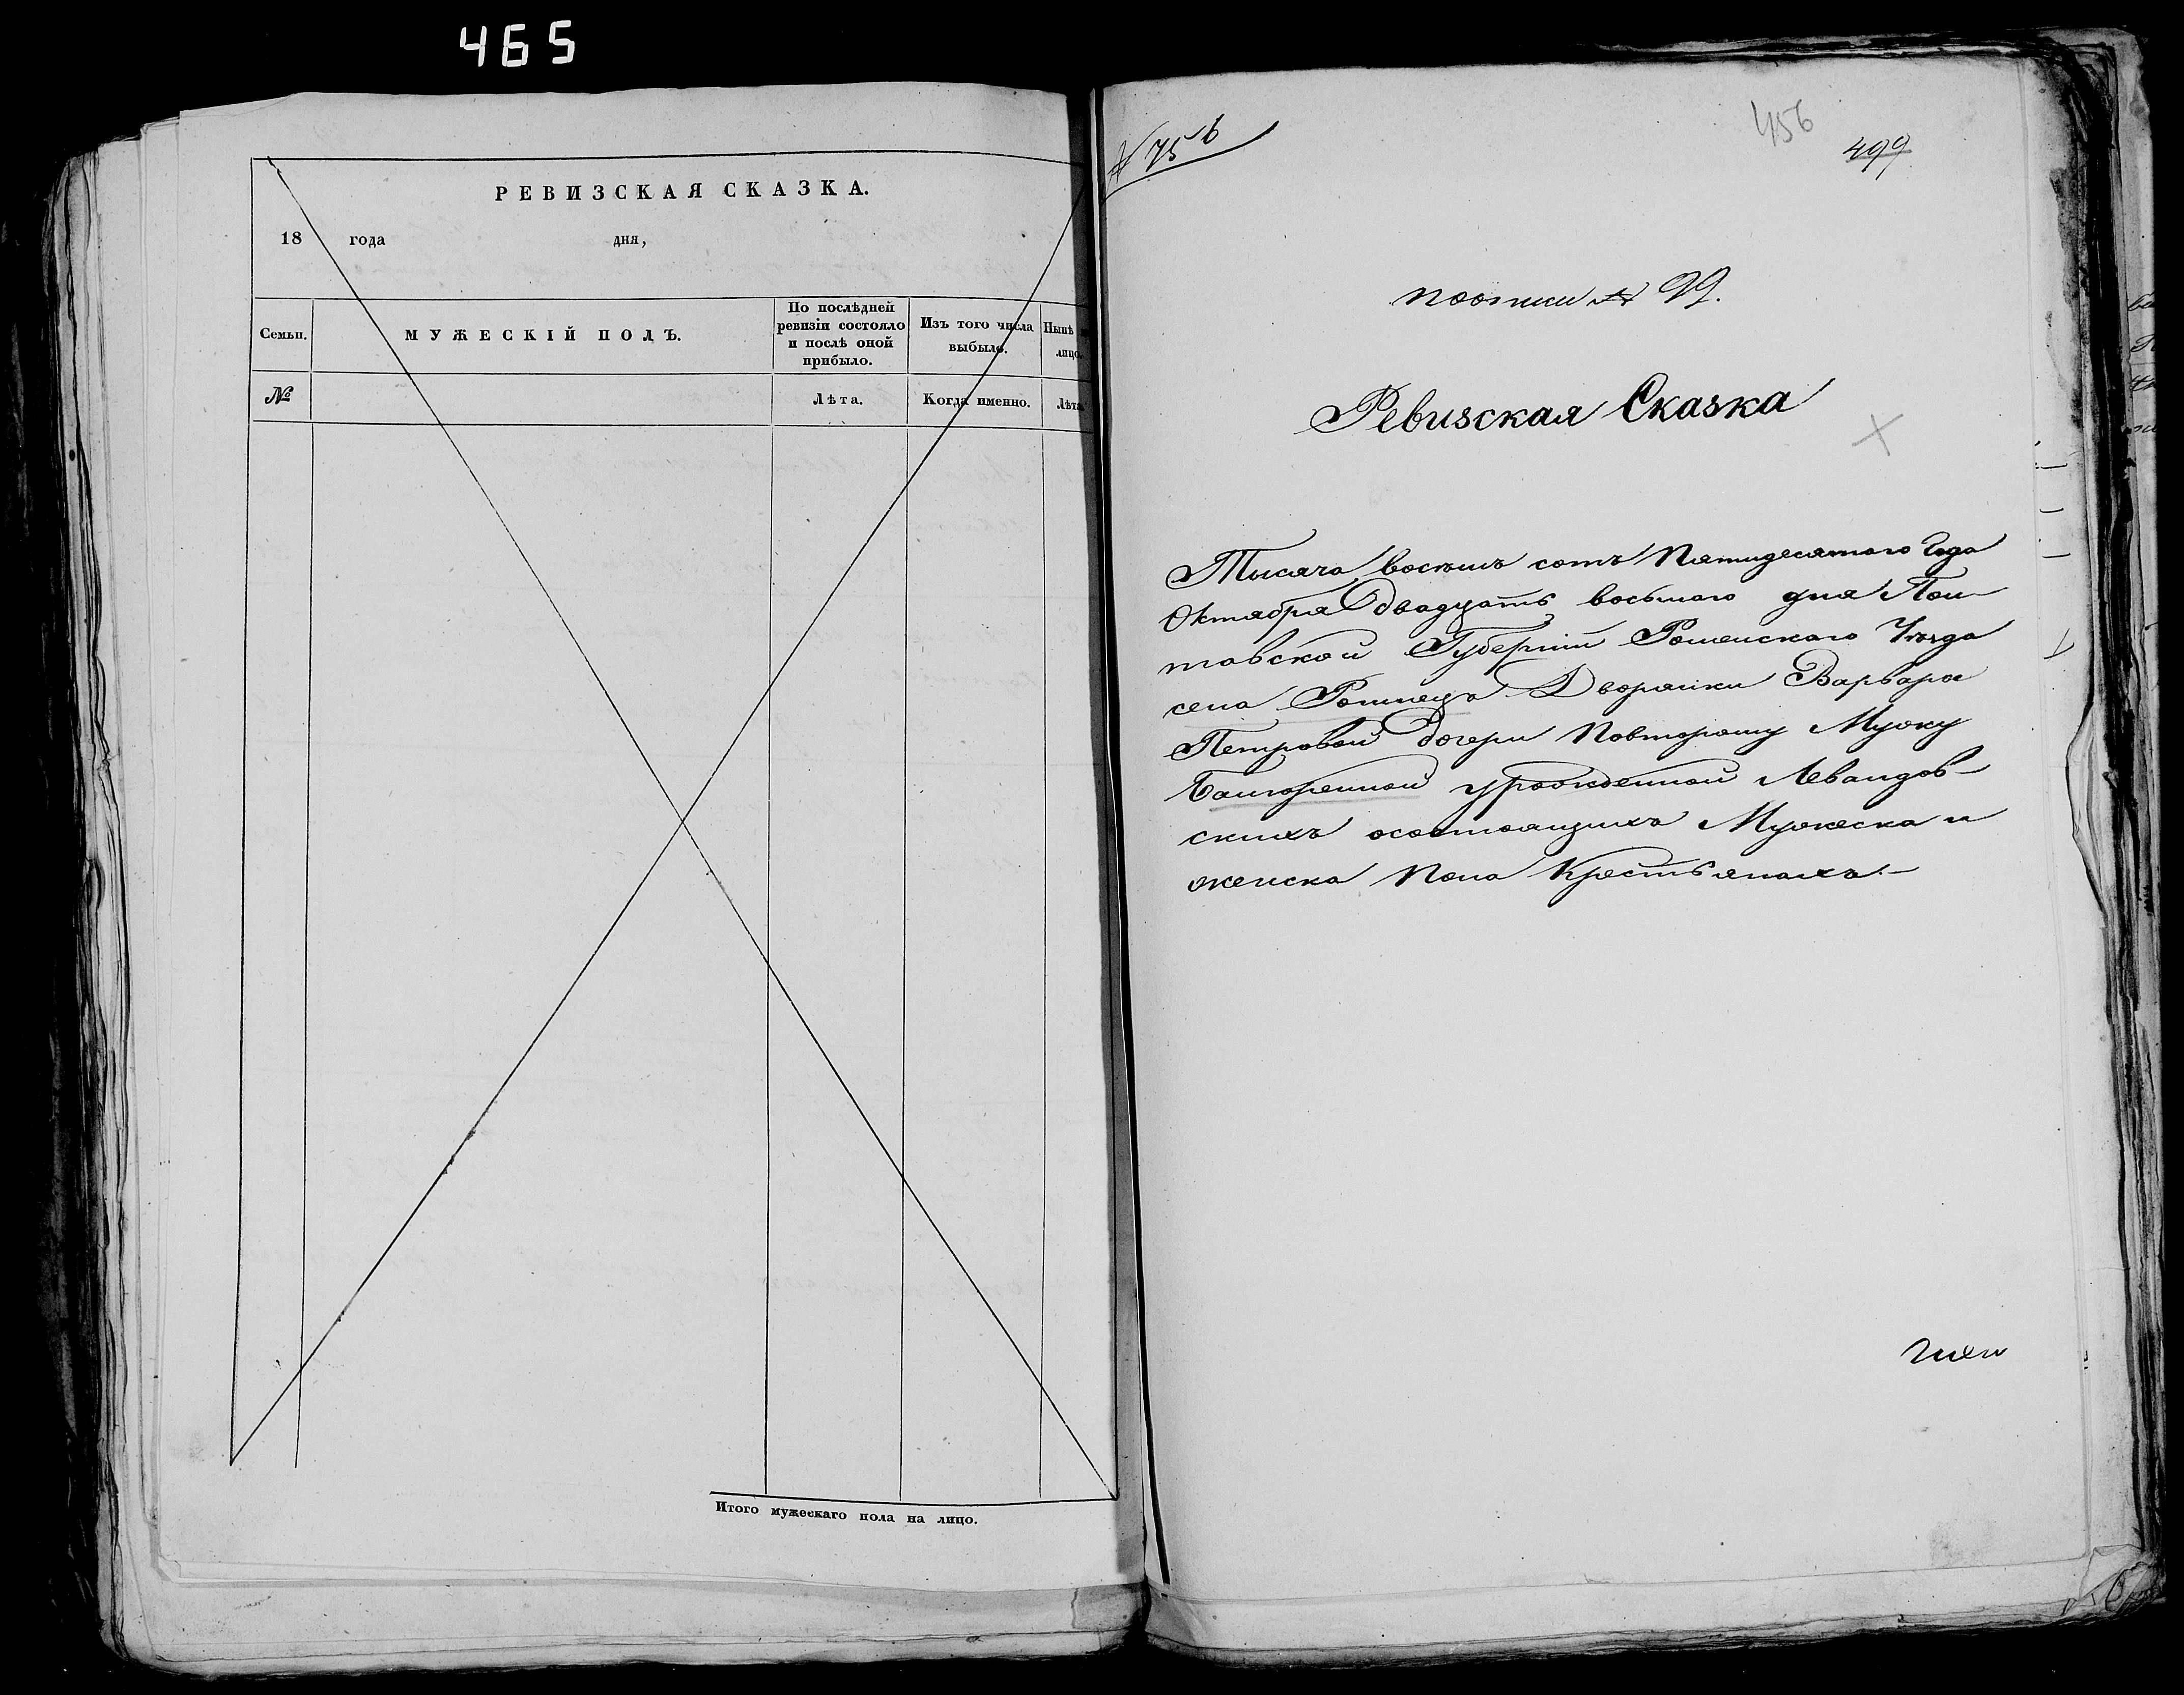 465
РЕВИЗСКАЯ СКАЗКА.
18 года дня,
Семьи.
МУЖЕСКІЙ ПОЛЪ.
По послѣдней
ревизіи состояло
и послѣ оной
прибыло.
Изъ того числа
выбыло.
Нынѣ
лицо
№
Лѣта.
Когда именно.
Лѣта
Итого мужескаго пола на лицо.
456
499
№ 99.
Ревизская Сказка
Тысяча восемь сотъ Пятидесятого Года
Октября Двадцать восьмаго дня Пол-
тавской Губерніи Роменскаго Уѣзда
села Дворянки Варвары
Петровой дочери Повторому Мужу
урожденной Левандов-
скихъ осостоящихъ Мужеска и
женска Пола Крестьянахъ.-